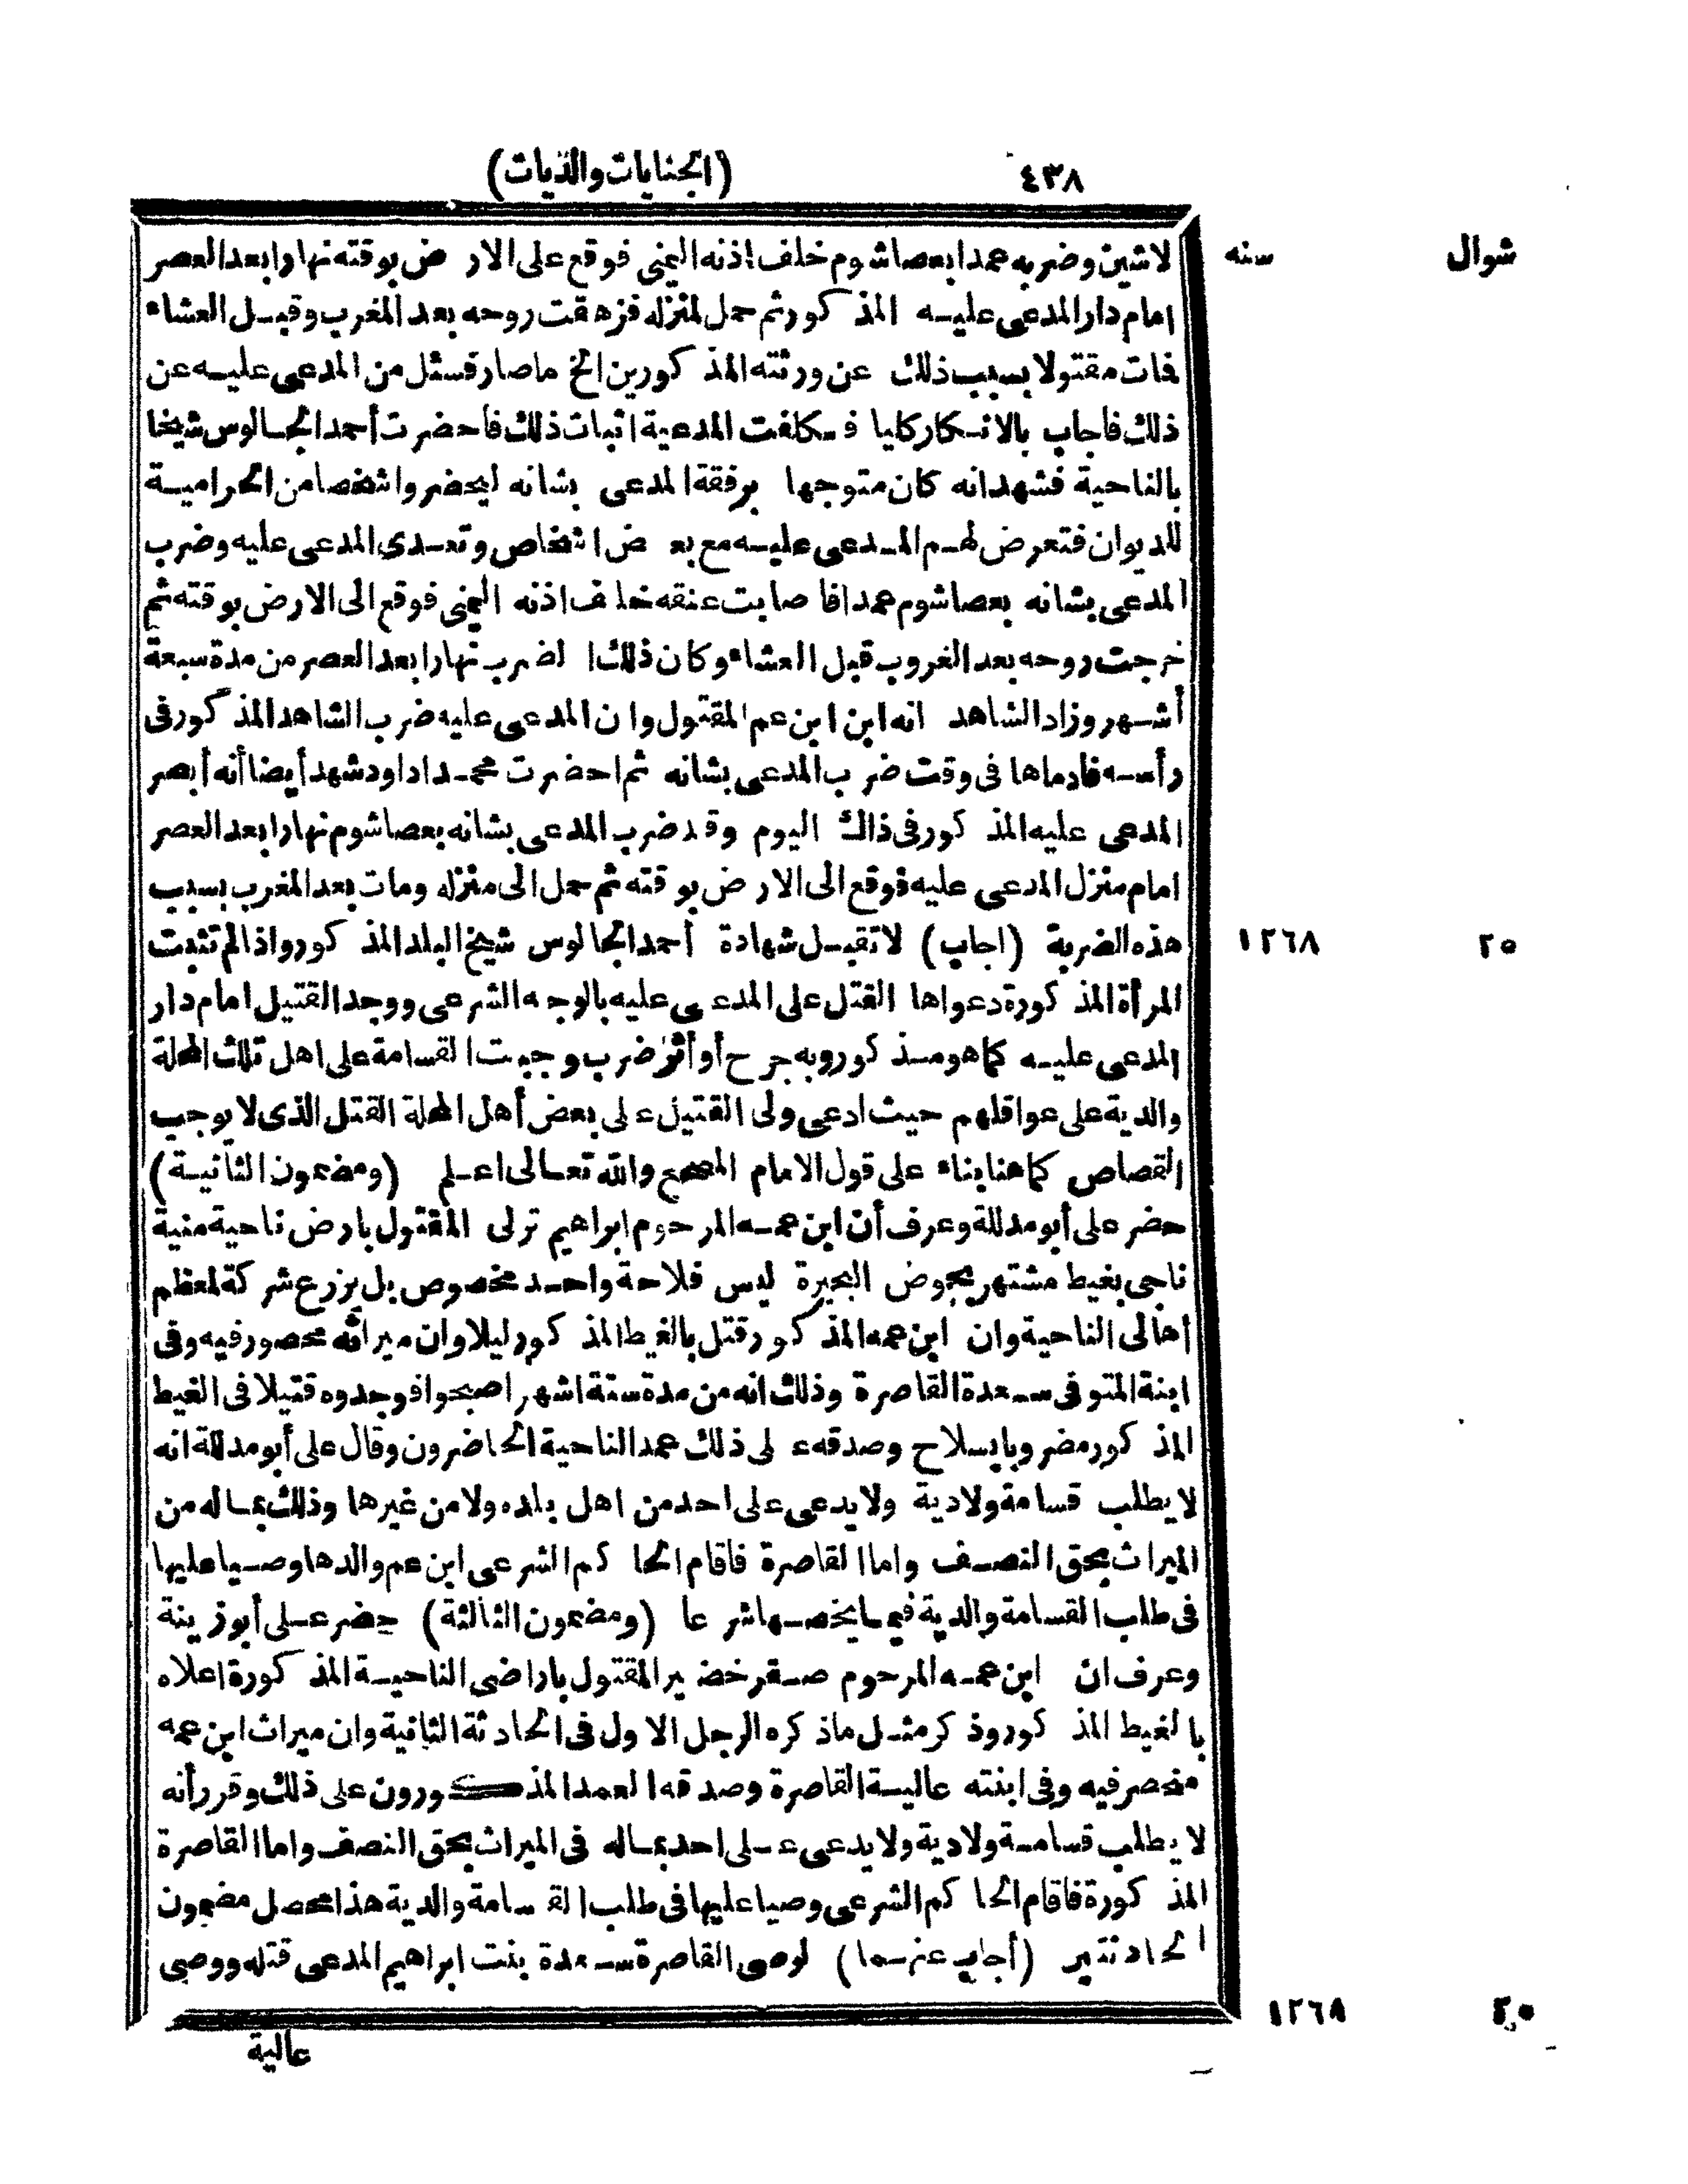 ٤٣٨ (الجنايات والديات)
شوال سنه
لاشين وضربه عمدا بعصا شوم خلف اذنه اليمنى فوقع على الارض بوقته نهارا بعد العصر
امام دار المدعى عليه المذكور ثم حمل لمنزله فزهقت روحه بعد المغرب وقبل العشاء
فمات مقتولا بسبب ذلك عن ورثته المذكورين الخ ما صار فسئل من المدعى عليه عن
ذلك فأجاب بالانكار كليا فكلفت المدعية اثبات ذلك فاحضرت أحمد الجالوس شيخا
بالناحية فشهد انه كان متوجها برفقة المدعى بشانه ليحضروا شخصا من الحرامية
للديوان فتعرض لهم المدعى عليه مع بعض اشخاص وتعدى المدعى عليه وضرب
المدعى بشانه بعصا شوم عمدا فاصابت عنقه خلف اذنه اليمنى فوقع الى الارض بوقته ثم
خرجت روحه بعد الغروب قبل العشاء وكان ذلك الضرب نهارا بعد العصر من مدة سبعة
أشهر وزاد الشاهد انه ابن ابن عم المقتول وان المدعى عليه ضرب الشاهد المذكور فى
رأسه فادماها فى وقت ضرب المدعى بشانه ثم احضرت محمدا داود شهد أيضا أنه أبصر
المدعى عليه المذكور فى ذاك اليوم وقد ضرب المدعى بشانه بعصا شوم نهارا بعد العصر
امام منزل المدعى عليه فوقع الى الارض بوقته ثم حمل الى منزله ومات بعد المغرب بسبب
هذه الضربة (اجاب) لا تقبل شهادة أحمد الجالوس شيخ البلد المذكور واذا لم تثبت
٢٥ ١٢٦٨
المرأة المذكورة دعواها القتل على المدعى عليه بالوجه الشرعى ووجد القتيل امام دار
المدعى عليه كما هو مذكور وبه جرح أو أثر ضرب وجبت القسامة على اهل تلك المحلة
والدية على عواقلهم حيث ادعى ولى القتيل على بعض أهل المحلة القتل الذى لا يوجب
القصاص كما هنا بناء على قول الامام المصحح والله تعالى اعلم (ومضمون الثانية)
حضر على أبو مدللة وعرف أن ابن عمه المرحوم ابراهيم تركى المقتول بارض ناحية منية
ناجى بغيط مشتهر بحوض البحيرة ليس فلاحة واحد مخصوص بل يزرع شركة لمعظم
أهالى الناحية وان ابن عمه المذكور قتل بالغيط المذكور ليلا وان ميراثه محصور فيه وفى
ابنة المتوفى سعدة القاصرة وذلك انه من مدة ستة اشهر اصبحوا فوجدوه قتيلا فى الغيط
المذكور مضروبا بسلاح وصدقه على ذلك عمد الناحية الحاضرون وقال على أبو مدللة انه
لا يطلب قسامة ولا دية ولا يدعى على احد من اهل بلده ولا من غيرها وذلك بماله من
الميراث بحق النصف واما القاصرة فاقام الحاكم الشرعى ابن عم والدها وصيا عليها
فى طلب القسامة والدية فيما يخصها شرعا (ومضمون الثالثة) حضر على أبو زينة
وعرف ان ابن عمه المرحوم صقر خضير المقتول باراضى الناحية المذكورة اعلاه
بالغيط المذكور وذكر مثل ماذكره الرجل الاول فى الحادثة الثانية وان ميراث ابن عمه
منحصر فيه وفى ابنته عالية القاصرة وصدقه العمد المذكورون على ذلك وقرر أنه
لا يطلب قسامة ولا دية ولا يدعى على احد بماله فى الميراث بحق النصف واما القاصرة
المذكورة فاقام الحاكم الشرعى وصيا عليها فى طلب القسامة والدية هذا محصل مضمون
الحادثتين (أجاب عنهما) لوصى القاصرة سعدة بنت ابراهيم المدعى قتله ووصى
٢٥ ١٢٦٨
عالية